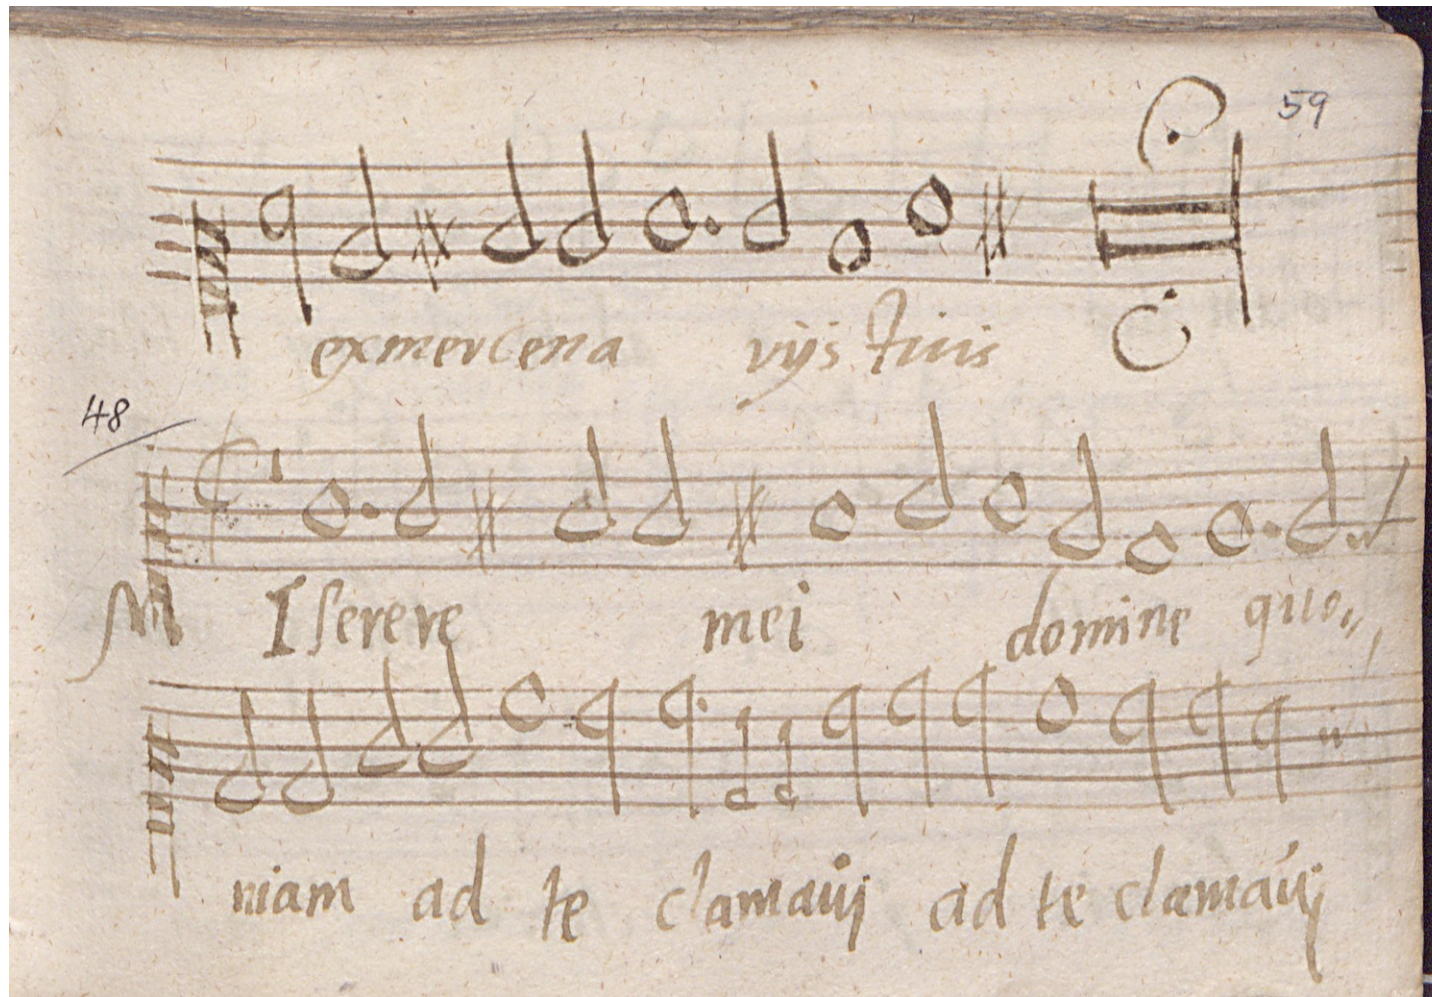 59
exmercena vijs tuis
48
MIserere mei domine quo
niam ad te clamauj ad te clamauj